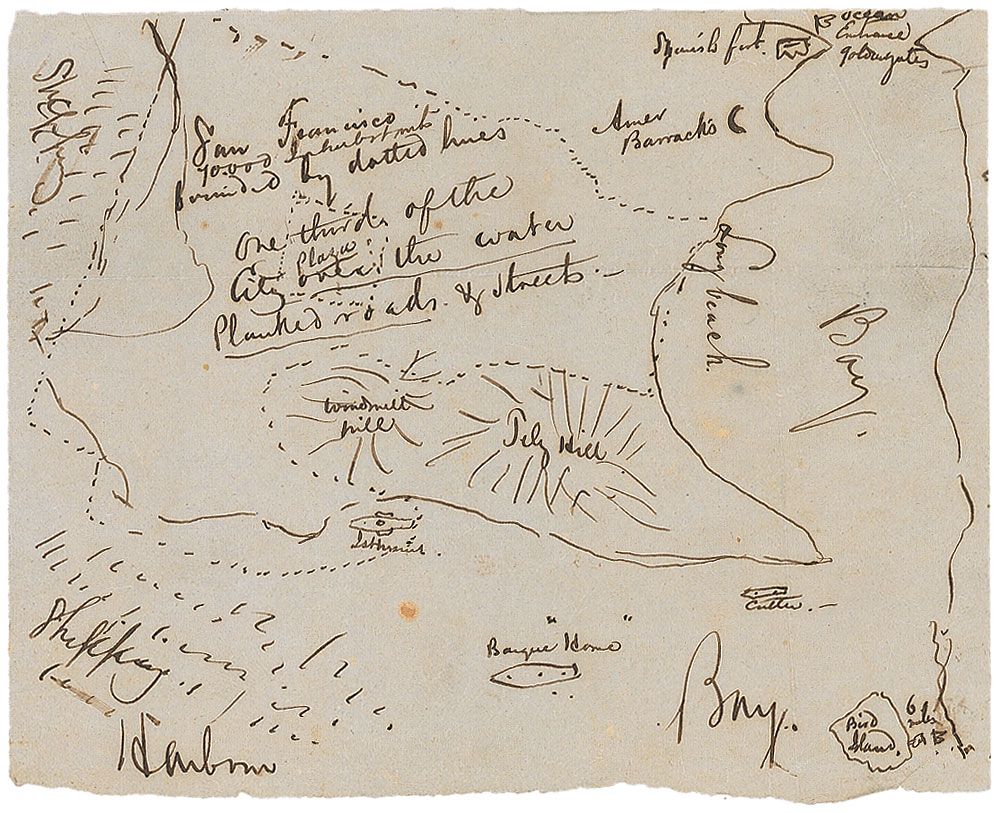 Shipping
San Francisco
70.000 Inhabitants
bounded by dotted lines
One third of the
Plaza
City over the water
Planked roads & Streets.
Spanish fort.
B Ocean
Entrance
Goldengates
Amer
Barracks
Long beach.
Bay.
Windmill
hill
Tely Hill
Isthmus.
Cutter.
Barque "Home"
Shipping
Harbour
Bay.
Bird
Island.
6
miles
B